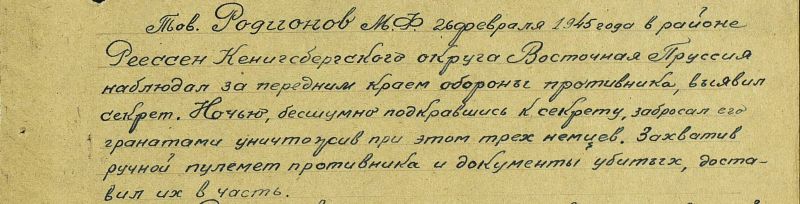 Тов. Родионов М.Ф. 26 февраля 1945 года в районе
Реессен Кенигсбергского округа Восточная Пруссия
наблюдал за передним краем обороны противника, выявил
секрет. Ночью, бесшумно подкравшись к секрету, забросал его
гранатами уничтожив при этом трех немцев. Захватив
ручной пулемет противника и документы убитых, доста-
вил их в часть.